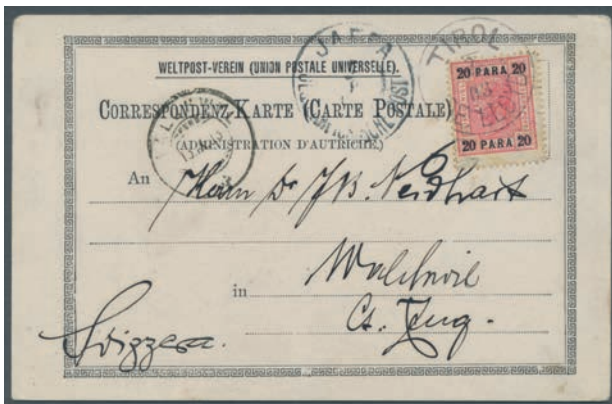 WELTPOST-VEREIN (UNION POSTALE UNIVERSELLE).
CORRESPONDENZ-KARTE (CARTE POSTALE)
(ADMINISTRATION D'AUTRICHE)
JAFFA
TIROL
20 PARA 20
20 PARA 20
An Herrn Dr J. B. Neidhart
in Walchwil
Ct. Zug.
Svizzera.